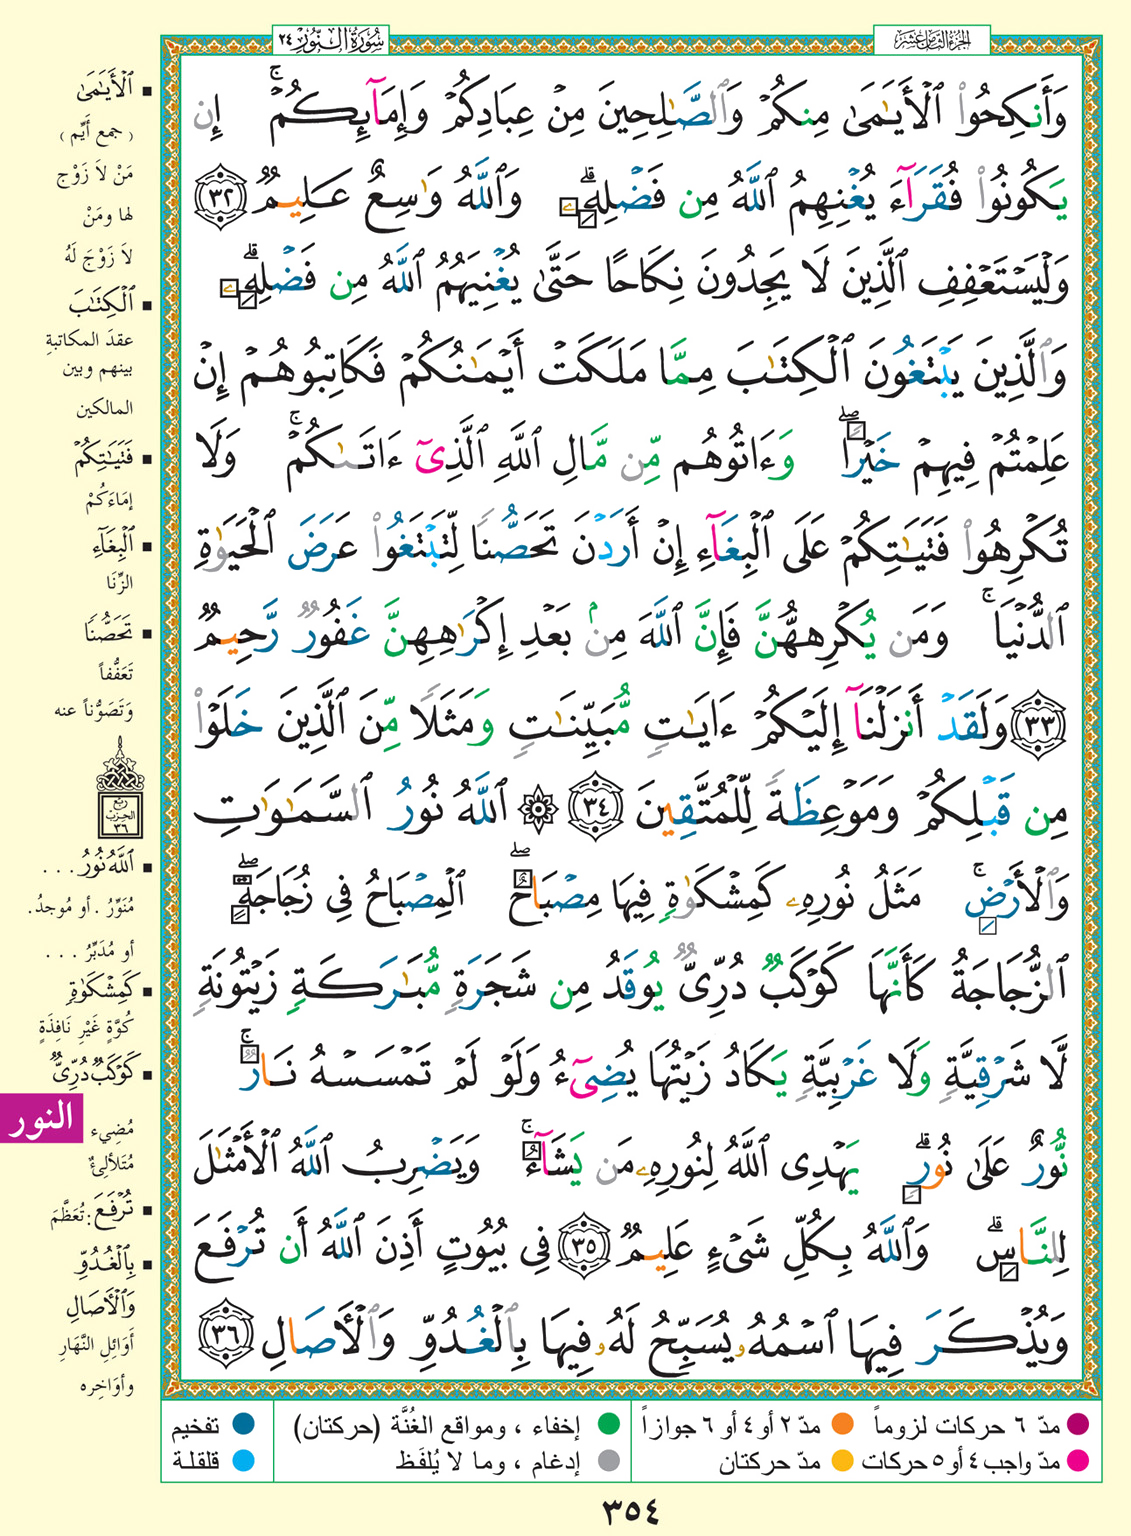 سُورَةُ النُّورِ ٢٤
الجزء الثامن عشر
وَأَنكِحُوا۟ ٱلْأَيَـٰمَىٰ مِنكُمْ وَٱلصَّـٰلِحِينَ مِنْ عِبَادِكُمْ وَإِمَآئِكُمْ ۚ إِن
يَكُونُوا۟ فُقَرَآءَ يُغْنِهِمُ ٱللَّهُ مِن فَضْلِهِۦ ۗ وَٱللَّهُ وَٰسِعٌ عَلِيمٌ ٣٢
وَلْيَسْتَعْفِفِ ٱلَّذِينَ لَا يَجِدُونَ نِكَاحًا حَتَّىٰ يُغْنِيَهُمُ ٱللَّهُ مِن فَضْلِهِۦ ۗ
وَٱلَّذِينَ يَبْتَغُونَ ٱلْكِتَـٰبَ مِمَّا مَلَكَتْ أَيْمَـٰنُكُمْ فَكَاتِبُوهُمْ إِنْ
عَلِمْتُمْ فِيهِمْ خَيْرًا ۖ وَءَاتُوهُم مِّن مَّالِ ٱللَّهِ ٱلَّذِىٓ ءَاتَىٰكُمْ ۚ وَلَا
تُكْرِهُوا۟ فَتَيَـٰتِكُمْ عَلَى ٱلْبِغَآءِ إِنْ أَرَدْنَ تَحَصُّنًا لِّتَبْتَغُوا۟ عَرَضَ ٱلْحَيَوٰةِ
ٱلدُّنْيَا ۚ وَمَن يُكْرِههُّنَّ فَإِنَّ ٱللَّهَ مِنۢ بَعْدِ إِكْرَٰهِهِنَّ غَفُورٌ رَّحِيمٌ
٣٣ وَلَقَدْ أَنزَلْنَآ إِلَيْكُمْ ءَايَـٰتٍ مُّبَيِّنَـٰتٍ وَمَثَلًا مِّنَ ٱلَّذِينَ خَلَوْا۟
مِن قَبْلِكُمْ وَمَوْعِظَةً لِّلْمُتَّقِينَ ٣٤ ۞ ٱللَّهُ نُورُ ٱلسَّمَـٰوَٰتِ
وَٱلْأَرْضِ ۚ مَثَلُ نُورِهِۦ كَمِشْكَوٰةٍ فِيهَا مِصْبَاحٌ ۖ ٱلْمِصْبَاحُ فِى زُجَاجَةٍ ۖ
ٱلزُّجَاجَةُ كَأَنَّهَا كَوْكَبٌ دُرِّىٌّ يُوقَدُ مِن شَجَرَةٍ مُّبَـٰرَكَةٍ زَيْتُونَةٍ
لَّا شَرْقِيَّةٍ وَلَا غَرْبِيَّةٍ يَكَادُ زَيْتُهَا يُضِىٓءُ وَلَوْ لَمْ تَمْسَسْهُ نَارٌ ۚ
نُّورٌ عَلَىٰ نُورٍ ۗ يَهْدِى ٱللَّهُ لِنُورِهِۦ مَن يَشَآءُ ۚ وَيَضْرِبُ ٱللَّهُ ٱلْأَمْثَـٰلَ
لِلنَّاسِ ۗ وَٱللَّهُ بِكُلِّ شَىْءٍ عَلِيمٌ ٣٥ فِى بُيُوتٍ أَذِنَ ٱللَّهُ أَن تُرْفَعَ
وَيُذْكَرَ فِيهَا ٱسْمُهُۥ يُسَبِّحُ لَهُۥ فِيهَا بِٱلْغُدُوِّ وَٱلْأَصَالِ ٣٦
▪ ٱلْأَيَـٰمَىٰ
( جمع أَيِّم )
مَنْ لاَ زَوْج
لها ومَنْ
لاَ زَوْجَ لَهُ
▪ ٱلْكِتَـٰبَ
عقدَ المكاتبةِ
بينهم وبين
المالكين
▪ فَتَيَـٰتِكُمْ
إمَاءَكُمْ
▪ ٱلْبِغَآءِ
الزِّنَا
▪ تَحَصُّنًا
تَعَفُّفاً
وَتَصَوُّناً عنه
ربع
الحزب
٣٦
▪ ٱللَّهُ نُورُ ...
مُنَوِّرُ . أو مُوجدُ.
أو مُدَبِّرُ ...
▪ كَمِشْكَوٰةٍ
كُوَّةٍ غَيْرِ نَافِذَةٍ
▪ كَوْكَبٌ دُرِّىٌّ
مُضِيء
مُتَلألئٌ
▪ تُرْفَعَ : تُعَظَّمَ
▪ بِٱلْغُدُوِّ
وَٱلْأَصَالِ
أَوَائِلِ النَّهَارِ
وأوَاخِره
النور
مدّ ٦ حركات لزوماً
مدّ ٢ أو ٤ أو ٦ جوازاً
إخفاء ، ومواقع الغُنَّة (حركتان)
تفخيم
مدّ واجب ٤ أو ٥ حركات
مدّ حركتان
إدغام ، وما لا يُلفَظ
قلقلة
٣٥٤